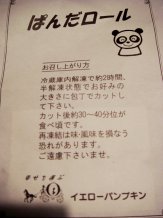 ぱんだロール
お召し上がり方
冷蔵庫内解凍で約2時間、
半解凍状態でお好みの
大きさに包丁でカットし
て下さい。
カット後約30〜40分位が
食べ頃です。
再凍結は味・風味を損なう
恐れがあります。
ご遠慮下さいませ。
イエローパンプキン